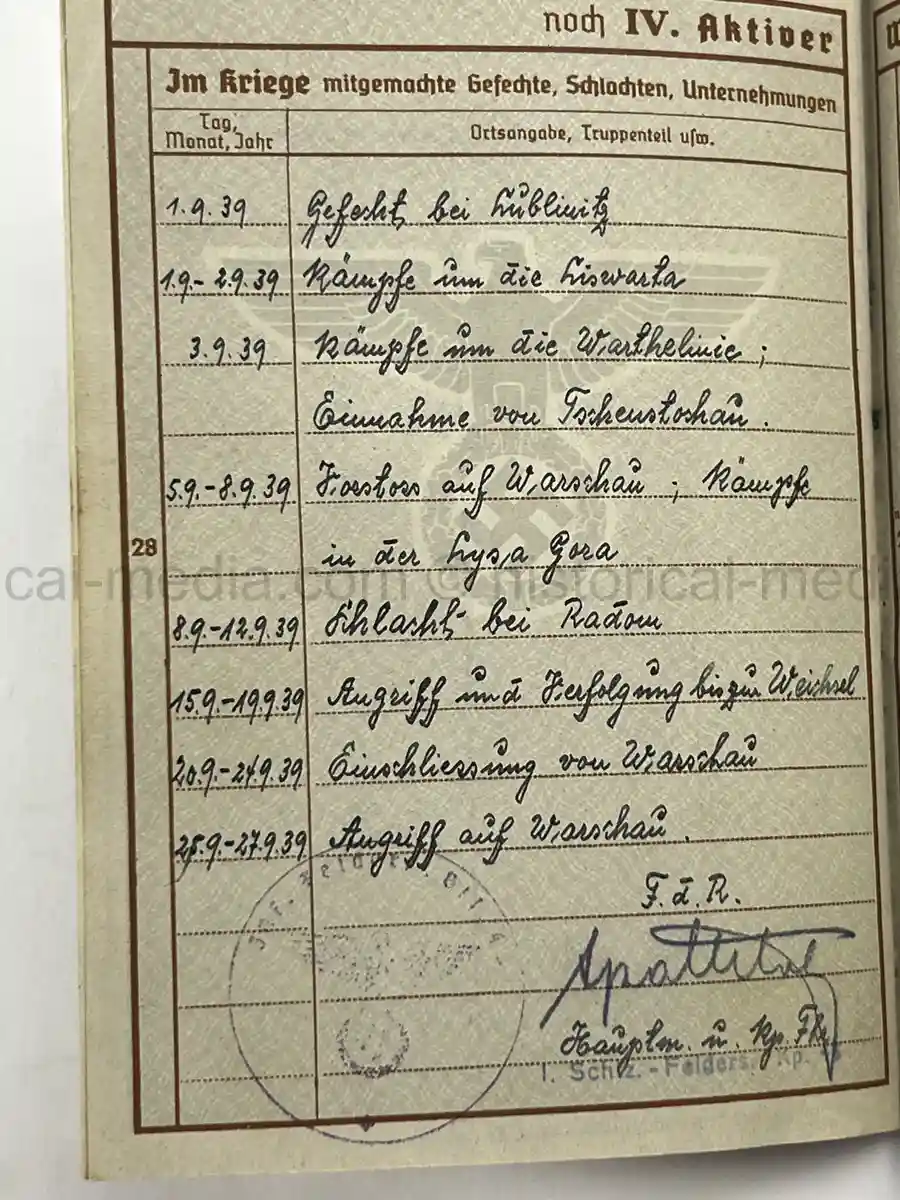 noch IV. Aktiver
Im Kriege mitgemachte Gefechte, Schlachten, Unternehmungen
Tag, Monat, Jahr
Ortsangabe, Truppenteil usw.
1.9.39 Gefecht bei Lublinitz
1.9.-2.9.39 Kämpfe um die Liswarta
3.9.39 Kämpfe um die Warthelinie;
Einnahme von Tschenstochau.
5.9.-8.9.39 Vorstoss auf Warschau; Kämpfe
28
in der Lysa Gora
8.9.-12.9.39 Schlacht bei Radom
15.9.-19.9.39 Angriff und Verfolgung bis zur Weichsel
20.9.-24.9.39 Einschliessung von Warschau
25.9.-27.9.39 Angriff auf Warschau.
F.d.R.
Hauptm. u. Kp.
1. Schtz.-Felders. Kp.